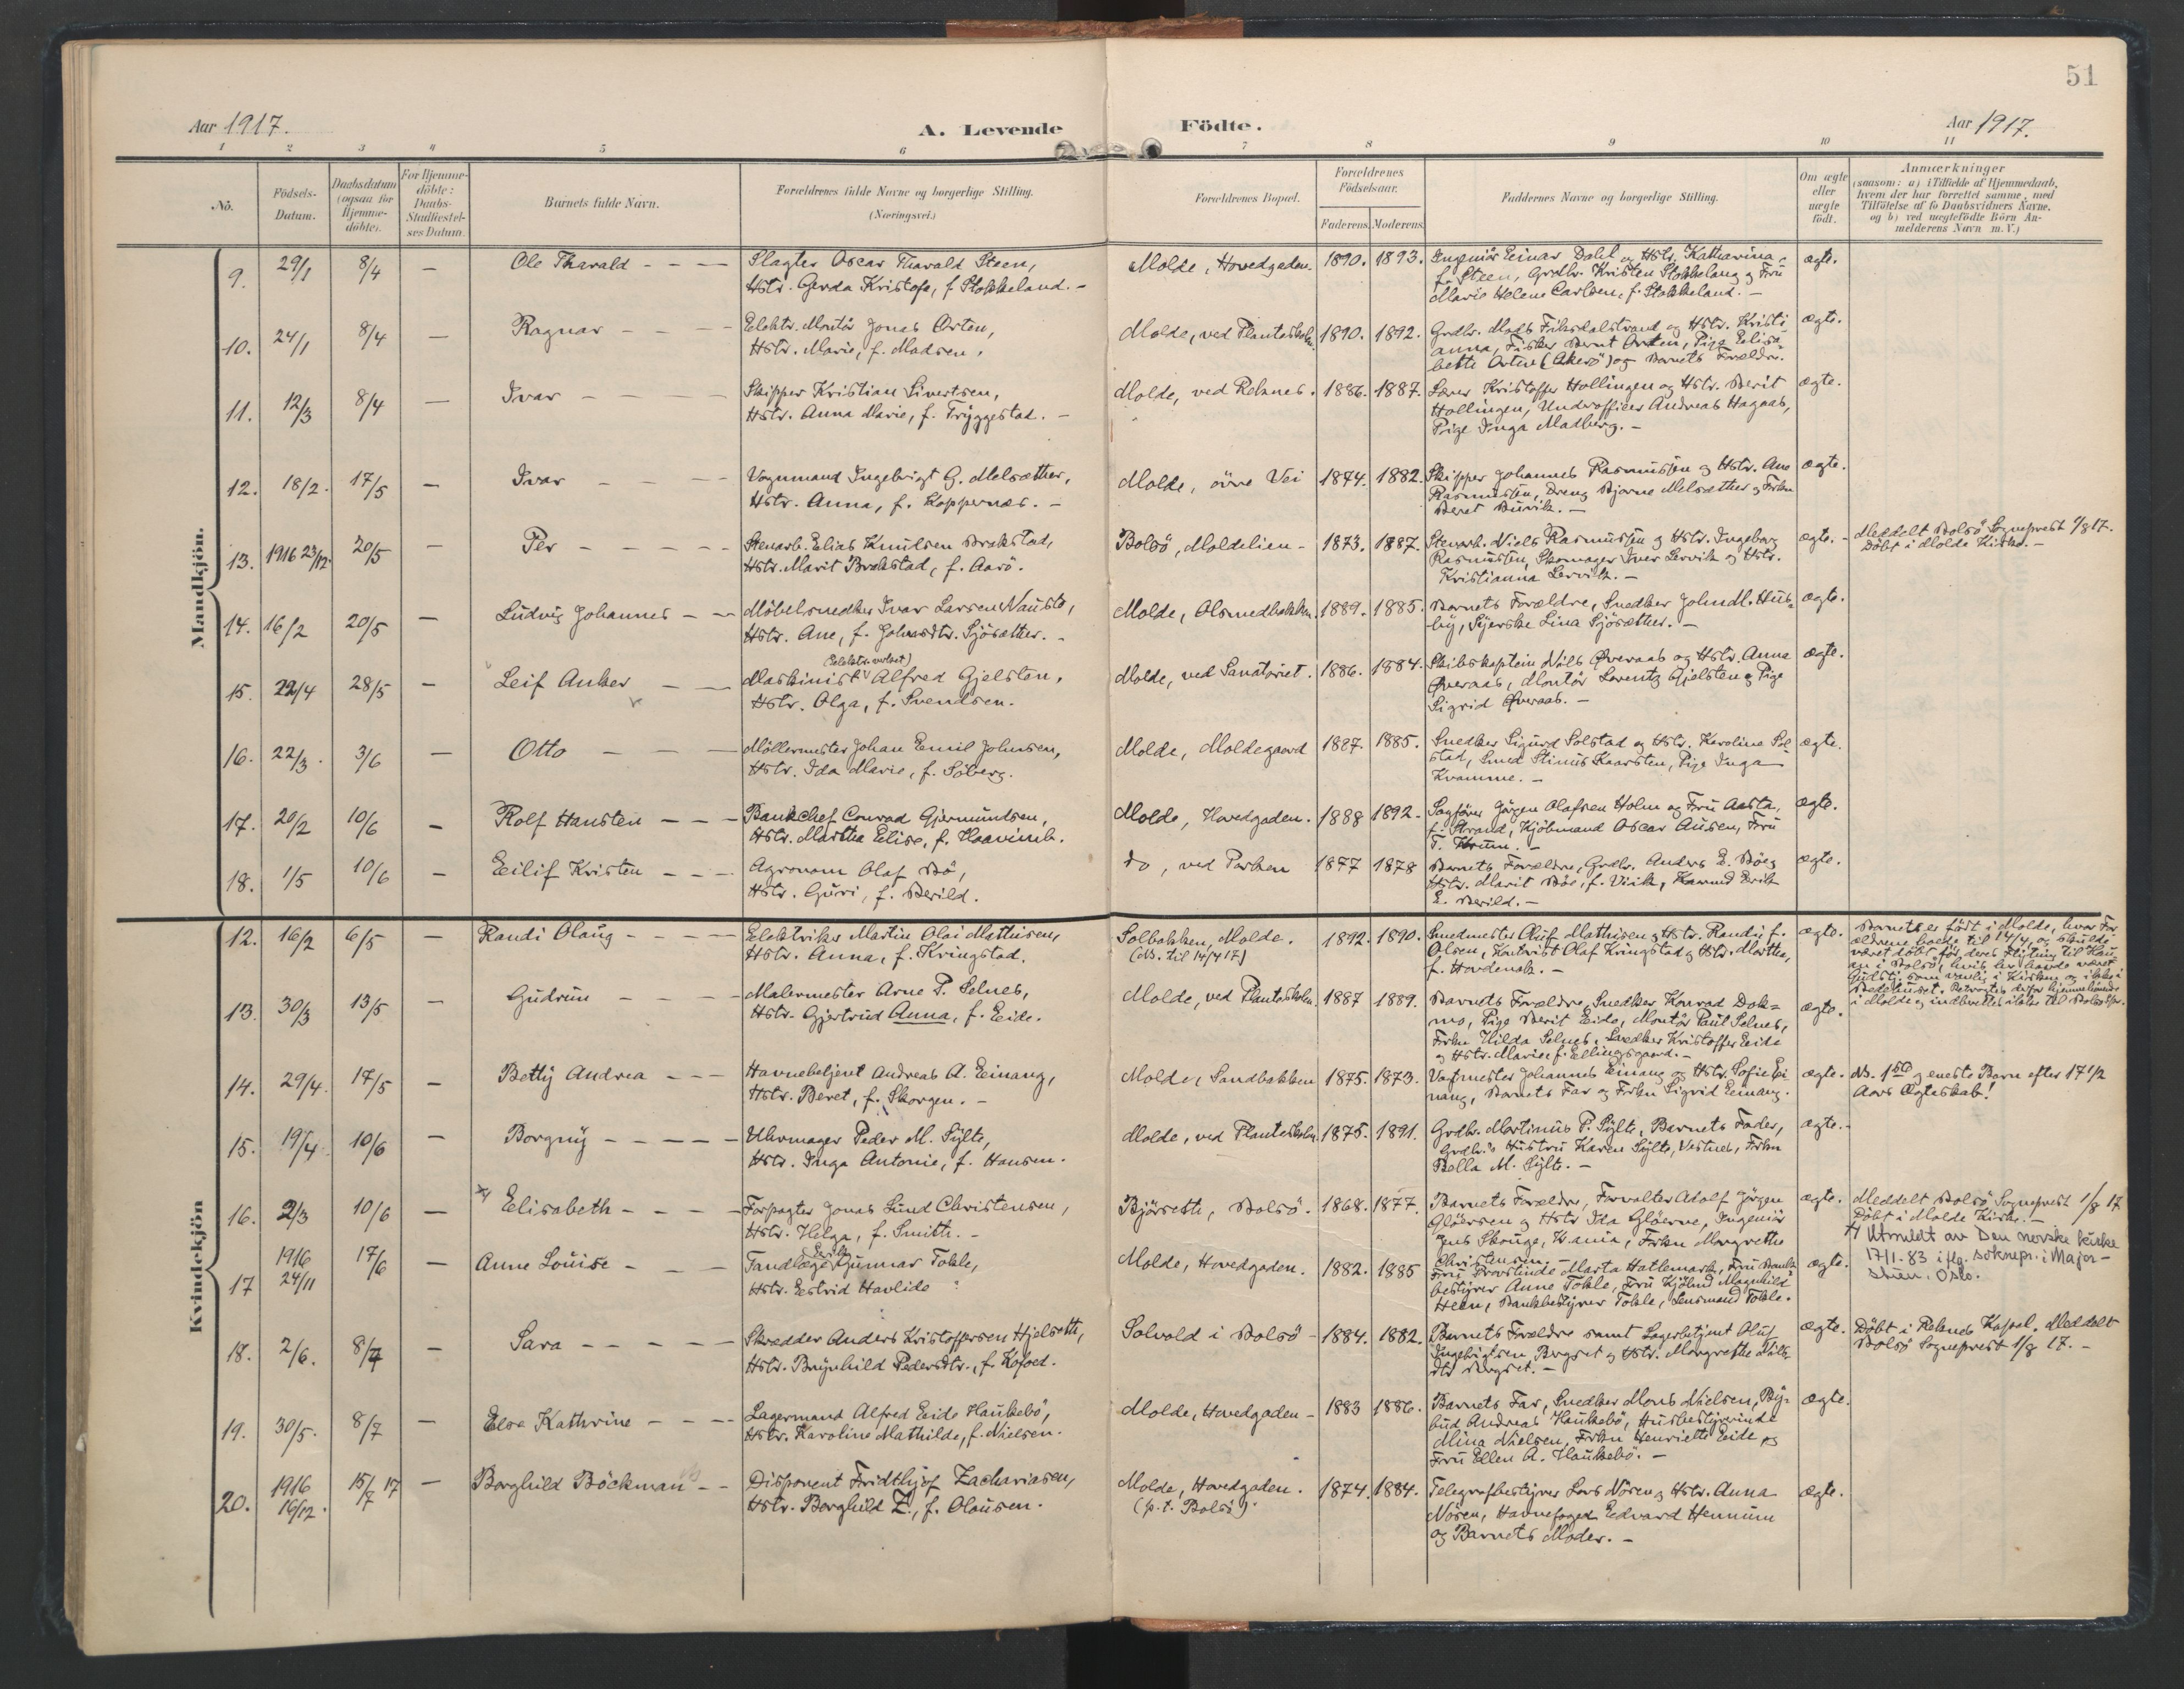 51
Aar 1917.
A. Levende Födte.
Aar 1917.
1 2 3 4 5 6 7 8 9 10 11
No.
Födsels-
Datum.
Daabsdatum
(ogsaa for
Hjemme-
döbte).
For Hjemme-
döbte:
Daabs-
Stadfæstel-
ses Datum.
Barnets fulde Navn.
Forældrenes fulde Navne og borgerlige Stilling.
(Næringsvei.)
Forældrenes Bopæl.
Forældrenes
Födselsaar.
Faderens. Moderens.
Faddernes Navne og borgerlige Stilling.
Om ægte
eller
uægte
födt.
Anmærkninger
(saasom: a) i Tilfælde af Hjemmedaab,
hvem der har forrettet samme, med
Tilföielse af to Daabsvidners Navne.
og b) ved uægtefödte Börn An-
melderens Navn m. V.)
Mandkjön.
9. 29/1 8/4 — Ole Tharald - - -
Slagter Oscar Tharald Steen,
Hstr. Gerda Kristofa, f. Stokkeland. -
Molde, Hovedgaden. 1890. 1893.
Ingeniör Einar Dahl og Hstr. Katharina,
f. Steen, Grdbr. Kristen Stokkeland og Fru
Marie Helene Carlsen, f. Stokkeland. -
ægte.
10. 24/1 8/4 — Ragnar - - -
Elektr. Montör Jonas Orten,
Hstr. Marie, f. Madsen.
Molde, ved Planteskolen. 1890. 1892.
Grdbr. Mads Fiksdalstrand og Hstr. Kristi-
anna, Fisker Bernt Orten, Pige Elisa-
beth Orten (Akerö) og Barnets Forældre.
ægte.
11. 12/3 8/4 — Ivar - - -
Skipper Kristian Sivertsen,
Hstr. Anna Marie, f. Tryggestad. -
Molde, ved Reknes. 1886. 1887.
Lærer Kristoffer Hollingen og Hstr. Berit
Hollingen, Underofficer Andreas Hagaas,
Pige Inga Malberg. -
ægte.
12. 18/2. 17/5 — Ivar - - -
Vognmand Ingebrigt G. Melsæther,
Hstr. Anna, f. Koppernæs. -
Molde, övre Vei 1874. 1882.
Skipper Johannes Rasmussen og Hstr. Ane
Rasmussen, Dreng Bjarne Melsæther og Frkn
Beret Buvik. -
ægte.
13. 1916 23/12. 20/5 — Per - - - -
Stenarb. Elias Knutsen Brakstad,
Hstr. Marit Brakstad, f. Aarö.
Bolsö, Moldelien - 1873. 1887.
Stenarb. Niels Rasmussen og Hstr. Ingeborg
Rasmussen, Skomager Iver Lervik og Hstr.
Kristianna Lervik. -
ægte. -
Meddelt Bolsö Sogneprest 1/8 17.
Döbt i Molde Kirke. -
14. 16/2 20/5 — Ludvig Johannes - -
Möbelsnedker Ivar Larsen Nauste,
Hstr. Ane, f. Johansdtr. Sjösæther. -
Molde, Olsmedbakken. 1889. 1885.
Barnets Forældre, Snedker John M. Hus-
by, Syerske Lina Sjösæther. -
ægte.
15. 22/4 28/5 — Leif Anker - -
(Elektr. verket)
Maskinist Alfred Gjelsten,
Hstr. Olga, f. Svendsen.
Molde, ved Sanatoriet. 1886. 1884.
Skibskaptein Nils Øveraas og Hstr. Anna
Øveraas, Montör Lorentz Gjelsten og Pige
Sigrid Øveraas. -
ægte.
16. 22/3. 3/6 — Otto - - -
Möllermester Johan Emil Johnsen,
Hstr. Ida Marie, f. Söberg.
Molde, Moldegaard 1887. 1885.
Snedker Sigurd Solstad og Hstr. Karoline Sol-
stad, Smed Stinus Kaarsten, Pige Inga
Kvamme. -
ægte.
17. 20/2 10/6 — Rolf Hansten - - -
Bankchef Conrad Gjermundsen,
Hstr. Martha Elise, f. Haavimb.
Molde, Hovedgaden. 1888 1892.
Sagförer Jörgen Olafsen Holm og Fru Aasta,
f. Strand, Kjöbmand Oscar Ausen, Fru
T. Krüm. -
ægte.
18. 1/5 10/6 — Eilif Kristen - - -
Agronom Olaf Bö,
Hstr. Guri, f. Berild.
do, ved Parken 1877 1878
Barnets Forældre, Grdbr. Anders E. Böe og
Hstr. Marit Böe, f. Viik, Kaarmd Erik
E. Berild. -
ægte.
Kvindekjön
12. 16/2 6/5 — Randi Olaug - - -
Elektriker Martin Olai Mathisen,
Hstr. Anna, f. Kringstad.
Solbakken, Molde.
(NB. til 14/4 17)
1892. 1890.
Smedmester Oluf Mathisen og Hstr. Randi, f.
Olsen, Kontorist Olaf Kringstad og Hstr. Martha,
f. Hordenak. -
ægte.
Barnet er födt i Molde, hvor For-
ældrene boede til 14/4, og skulde
været döbt för deres Flytning til
i Bolsö, hvis der havde været
Gudstj. som vanlig i Kirken og ikke i
Bedehuset. Betragtes derfor hjemmehörende
i Molde og indberettes ikke til Bolsö Spr.
13. 30/3 13/5 — Gudrun - - -
Malermester Arne P. Selnes,
Hstr. Gjertrud Anna, f. Eide.
Molde, ved Planteskolen 1887 1889.
Barnets Forældre, Snedker Konrad Dok-
mo, Pige Berit Eide, Montör Paul Selnes,
Frkn Hilda Selnes, Snedker Kristoffer Eide
og Hstr. Marie, f. Ellingsgaard. -
ægte.
14. 29/4. 17/5 — Betty Andrea - - -
Havnebetjent Andreas A. Einang,
Hstr. Beret, f. Skorgen. -
Molde, Sandbakken 1875. 1873.
Vagtmester Johannes Einang og Hstr. Sofie Ei-
nang, Barnets Far og Frkn Sigrid Einang.
ægte.
NB. 1ste og eneste Barn efter 17 1/2
Aars Ægteskab!
15. 19/4 10/6 — Borgny - - - -
Uhrmager Peder M. Sylte,
Hstr. Inga Antonie, f. Hansen.
Molde, ved Planteskolen. 1875. 1891.
Grdbr. Martinus P. Sylte, Barnets Fader,
Grdbr's Hustru Karen Sylte, Vestnes, Frkn
Bella M. Sylte. -
ægte. -
16. 2/3 10/6 — Elisabeth - - -
Forpagter Jonas Lund Christensen,
Hstr. Helga, f. Smith. -
Bjørsethe, Bolsö. 1868. 1877.
Barnets Forældre, Forvalter Adolf Jörgen
Glöersen og Hstr Ida Glöerne, Ingeniör
Jens Skouge, K.ania, Frkn Margrethe
Christensen. -
ægte.
Meddelt Bolsö Sogneprest 1/8 17
Döbt i Molde Kirke. -
Utmeldt av Den norske kirke
17/1-83 iflg. soknepr. i Major-
stuen. Oslo.
17 1916 24/11 17/6 — Anne Louise - - -
Tandlæge Gunnar Tokle,
Hstr. Estrid Havlide
Molde, Hovedgaden. 1882. 1885
Fru Provstinde Marta Hatlemark, Fru Bank-
bestyrer Anne Tokle, Fru Kjöbmd Magnhild
Heen, Bankbestyrer Tokle, Lensmand Tokle.
ægte.
18. 2/6. 8/7 — Sara - - - -
Skredder Anders Kristoffersen Hjelsethe,
Hstr. Brynhild Pedersdtr., f. Kofoed.
Solvold i Bolsö - 1884. 1882.
Barnets Forældre samt Lagerbetjent Oluf
Ingebrigtsen Bergset og Hstr. Margrethe Nils-
dtr Bergset. -
ægte.
Döbt i Reknes Kapel. Meddelt
Bolsö Sogneprest 1/8 17. -
19. 30/5. 8/7 — Elsa Kathrine - - -
Lagermand Alfred Eide Haukebö,
Hstr. Karoline Mathilde, f. Nielsen.
Molde, Hovedgaden - 1883 1886.
Barnets Far, Snedker Mons Nielsen, By-
bud Andreas Haukebö, Husbestyrerinde
Mina Nielsen, Frkn Henriette Eide og
Fru Ellen A. Haukebö. -
ægte.
20. 1916 16/12. 15/7 17 — Borghild Böckman - -
Disponent Fridthjof Zachariasen,
Hstr. Borghild Z., f. Olausen.
Molde, Hovedgaden.
(p.t. Bolsö).
1874. 1884.
Telegrafbestyrer Lars Nören og Hstr. Anna
Nören, Havnefoged Edvard Hennum
og Barnets Moder. -
ægte.